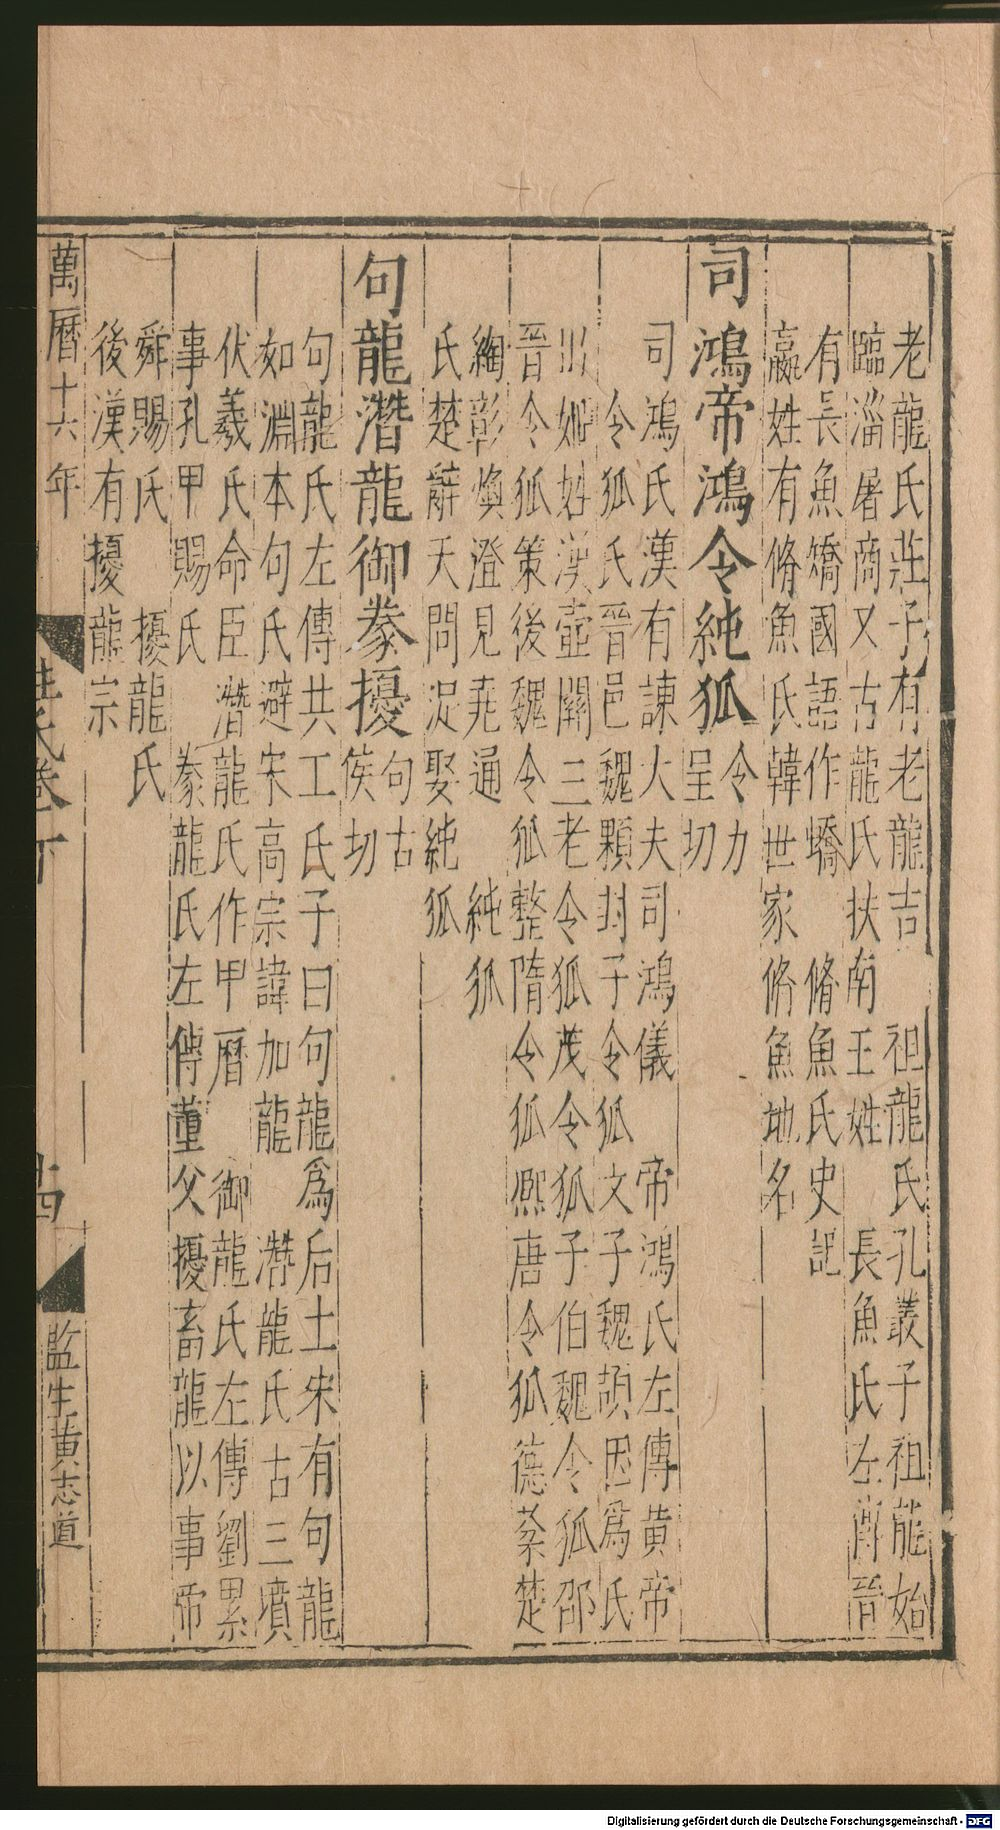 老龍氏莊子有老龍吉　祖龍氏孔叢子祖龍始
臨淄屠商又古龍氏扶南王姓　長魚氏左傳晉
有長魚矯國語作蟜　脩魚氏史記
嬴姓有脩魚氏韓世家脩魚地名
司鴻帝鴻令純狐
令力
呈切
司鴻氏漢有諫大夫司鴻儀　帝鴻氏左傳黃帝
令狐氏晉邑魏顆封子令狐文子魏頡因為氏
出姬姓漢壺關三老令狐茂令狐子伯魏令狐邵
晉令狐策後魏令狐整隋令狐熙唐令狐德棻楚
綯彰煥澄見堯通　純狐
氏楚辭天問浞娶純狐
句龍潛龍御豢擾
句古
侯切
句龍氏左傳共工氏子曰句龍爲后土宋有句龍
如淵本句氏避宋高宗諱加龍　潛龍氏古三墳
伏羲氏命臣潛龍氏作甲曆　御龍氏左傳劉累
事孔甲賜氏　豢龍氏左傳董父擾畜龍以事帝
舜賜氏　擾龍氏
後漢有擾龍宗
萬曆十六年
卷下
十四
監生黃志道
Digitalisierung gefördert durch die Deutsche Forschungsgemeinschaft - DFG